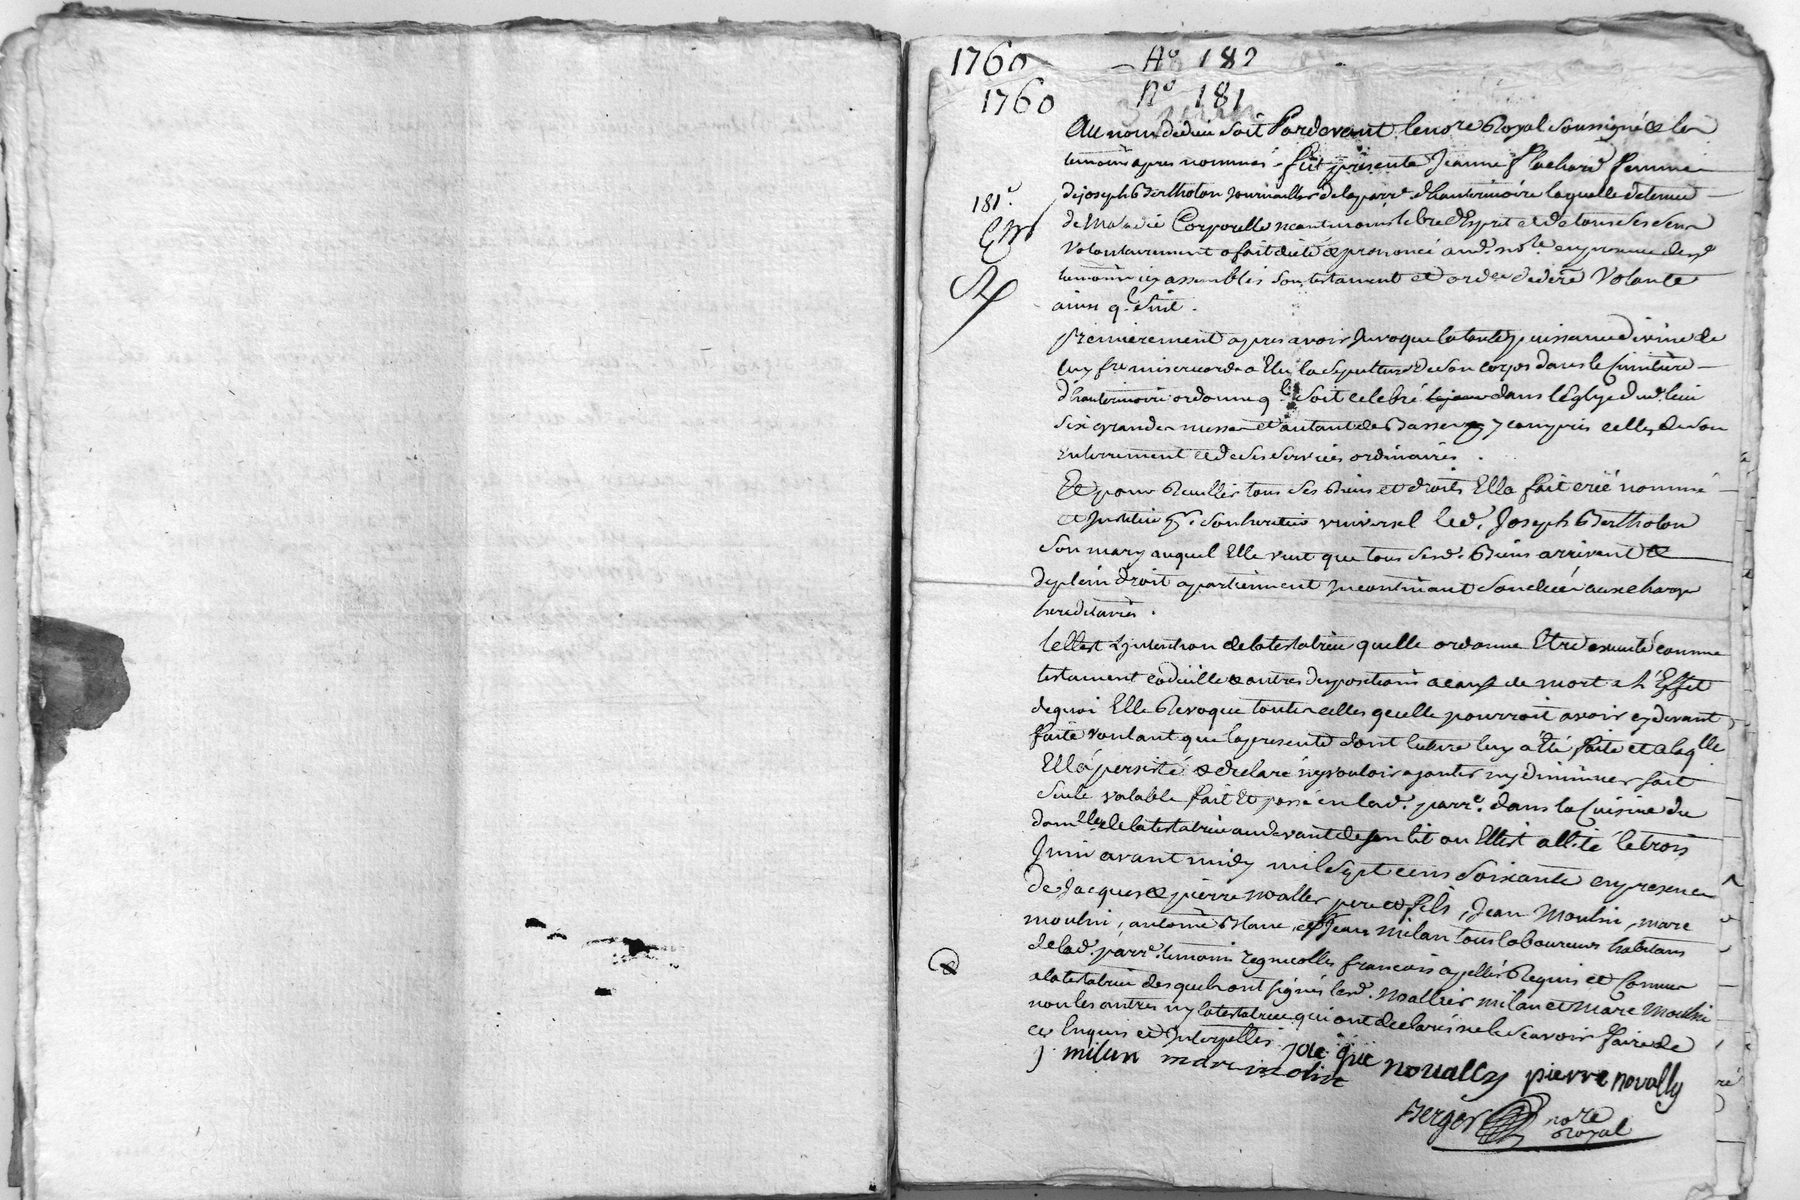 1760 No 182
1760 No 181
3 juin
Au nom de dieu soit Pardevant le nore Royal soussigné & les
temoins apres nommés fut presente Jeanne flachard femme
de joseph Bertholon journaillier de la parre d'hauterivoire laquelle detenue
181e
de Maladie Corporelle neantmoins libre d'Esprit et de tous ses sens
volontairement a fait dicté & prononcé aud. nore en presence desd
temoins icy assemblés son testament et ordce de dere volonté
ainsi q. suit.
Premierement apres avoir Invoqué la toute puissance divine de
luy fre misericorde a Elu la sepulture de son corps dans le Cimitière
d'hauterivoire ordonne ql soit celebré dans l'Eglise dud. lieu
six grandes messes et autant de Basses y compris celles de son
enterrement et de ses services ordinaires.
Et pour Recuillir tous ses Biens et droits Ella fait créé nommé
et Institué pr. son heritier universel led. Joseph Bertholon
son mary auquel Elle veut que tous sesd. Biens arrivent &
de plein droit apartiennent Incontinant son decés aux charges
hereditaires.
Telle est L'intention de la testatrice quelle ordonne Etre executé comme
testament codicille & autres dispositions a cause de mort a L'Effet
de quoi Elle Revoque toutes celles quelle pourroit avoir cy devant
faite voulant que la presente dont lecture luy a Eté faite et a laqlle
Ella persisté & declaré ny vouloir ajouter ny diminuer soit
seule valable fait Et passé en lad. parre. dans la Cuisine du
domlle de la testatrice au devant de son lit ou Ellest allité le trois
Juin avant midy mil sept cens soixante en presence
de Jacques & pierre noallier pere et fils, Jean Moulin, marc
moulin, antoine Blanc, et Jean Milan tous laboureurs habitans
de lad. parre. temoins regnicolles francois apellés Requis et Connus
a la testatrice desquels ont signés lesd. noallier milan et marc moulin
non les autres ny la testatrice qui ont declarés ne le scavoir faire de
ce Enquis et Interpellés
j milan marc molin jac que noually pierre novally
Berger nore
Royal